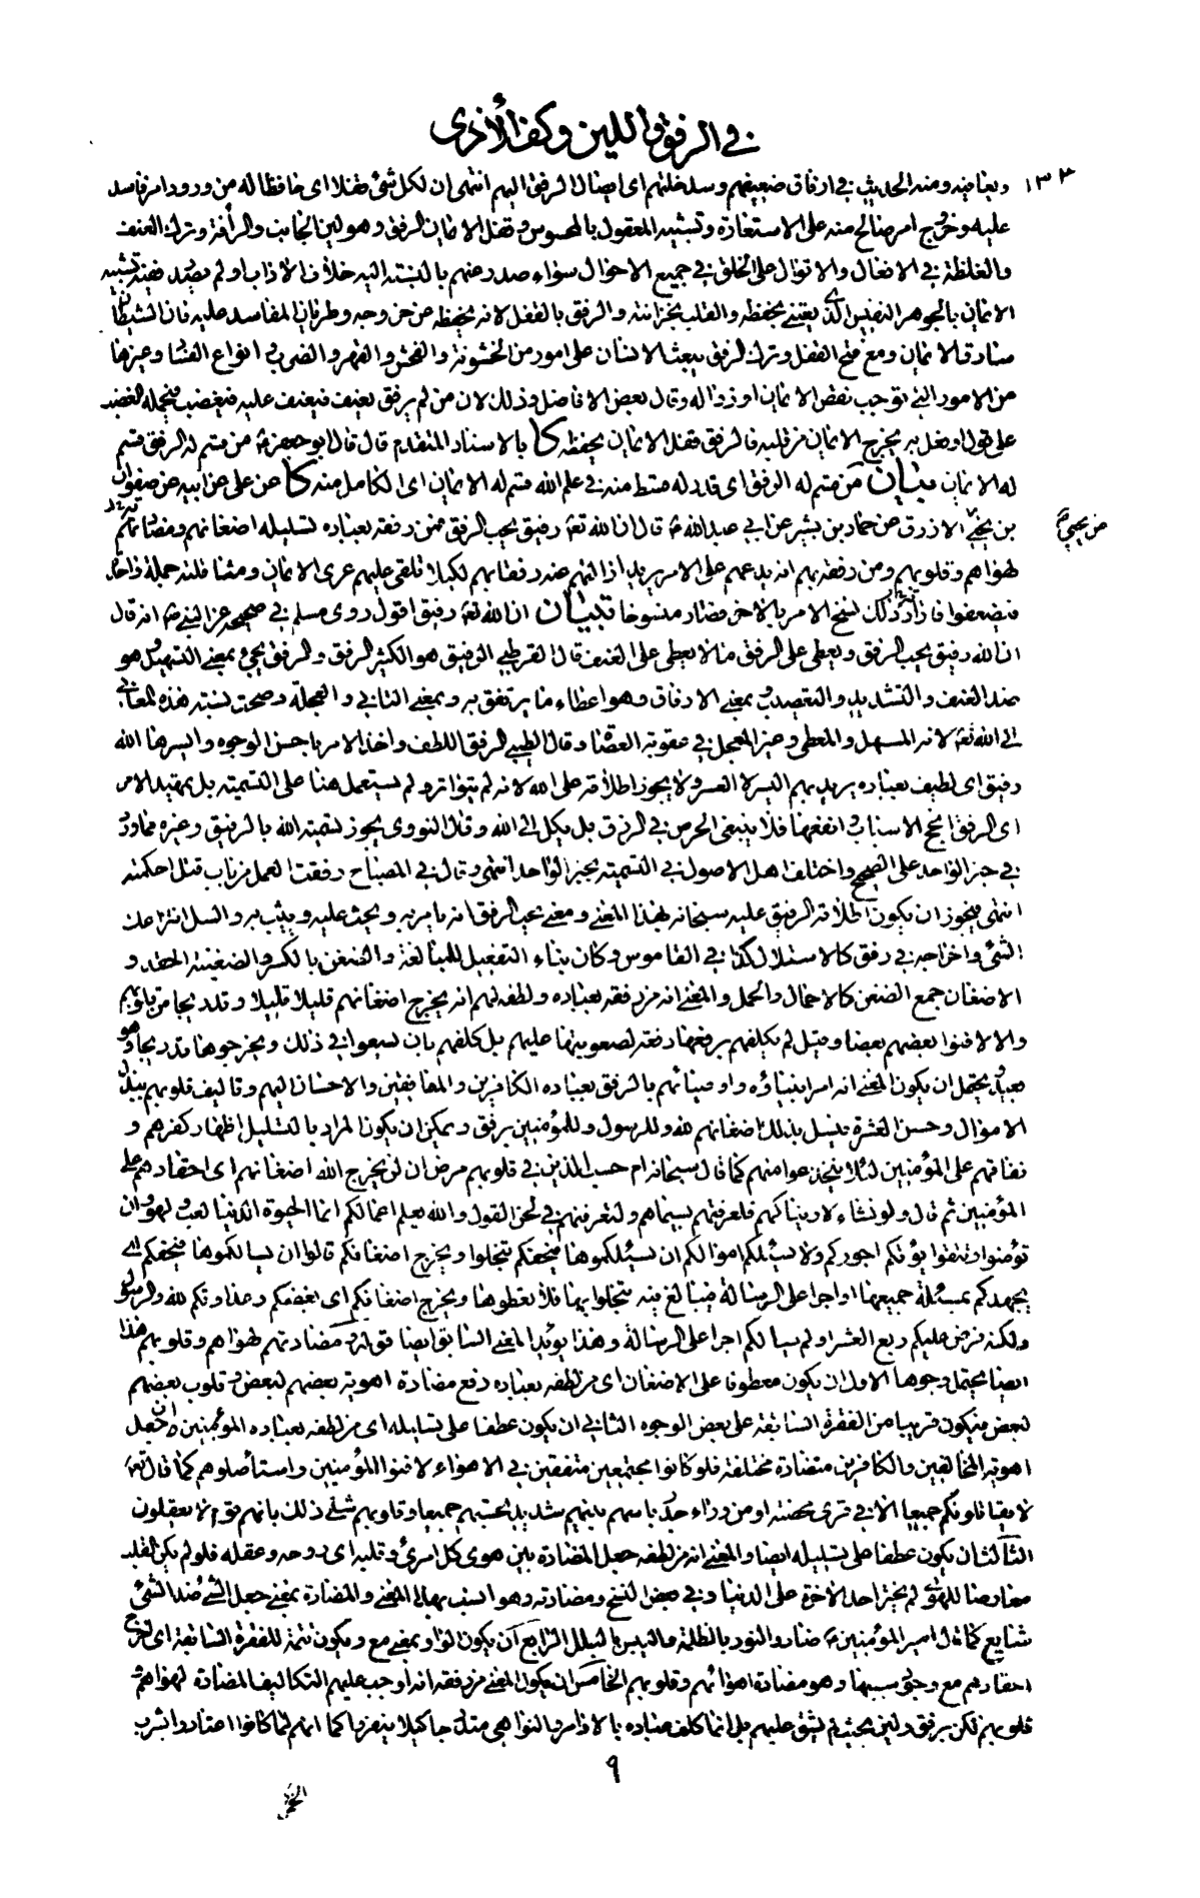 في الرفق واللين وكف الأذى
١٣٣
ويعافيه ومنه الحديث في ارفاق ضعيفهم وسد خلتهم اى ايصال الرفق اليهم انتهى ان لكل شئ قفلا اى حافظا له من ورود امر فاسد
عليه وخروج امر صالح منه على الاستعارة وتشبيه المعقول بالمحسوس وقفل الايمان الرفق وهو لين الجانب والرأفة وترك العنف
والغلظة في الافعال والاقوال على الخلق في جميع الاحوال سواء صدر عنهم بالنسبة اليه خلاف الاداب او لم يصدر ففيه تشبيه
الايمان بالجوهر النفيس الذي يعتنى بحفظه والقلب بخزانته والرفق بالقفل لانه يحفظه عن خروجه وطريان المفاسد عليه فان الشيطان
سارق الايمان ومع فتح القفل وترك الرفق يبعث الانسان على امور من الخشونة والفحش والقهر والضرب وانواع الفساد وغيرها
من الامور التي توجب نقص الايمان او زواله وقال بعض الافاضل وذلك لان من لم يرفق يعنف فيعنف عليه فيغضب فيحمله الغضب
على قول او فعل به يخرج الايمان من قلبه فالرفق قفل الايمان يحفظه كا بالاسناد المتقدم قال قال ابو جعفر ع من قسم له الرفق قسم
له الايمان بيان من قسم له الرفق اى قدر له قسط منه في علم الله قسم له الايمان اى الكامل منه كا عن علي عن ابيه عن صفوان
بن يحيى الازرق عن حماد بن بشير عن ابي عبد الله ع قال ان الله تع رفيق يحب الرفق فمن رفقه بعباده تسليله اضغانهم ومضادتهم
عن يحيى
لهواهم وقلوبهم ومن رفقه بهم انه يدعهم على الامر يريد ازالتهم عنه رفقا بهم لكيلا تلقى عليهم عرى الايمان ومثاقلته جملة واحدة
فيضعفوا فاذا اراد ذلك نسخ الامر بالاخر فصار منسوخا تبيان ان الله تع رفيق اقول روى مسلم في صحيحه عن النبي ص انه قال
ان الله رفيق يحب الرفق ويعطى على الرفق ما لا يعطى على العنف قال القرطبي الرفيق هو الكثير الرفق والرفق يجئ بمعنى التسهيل وهو
ضد العنف والتشديد والتعصيب وبمعنى الارفاق وهو اعطاء ما يرتفق به وبمعنى التاني وضد العجلة وصحت نسبة هذه المعاني
الى الله تع لانه المسهل والمعطي وغير المعجل في عقوبة العصاة وقال الطيبي الرفق اللطف واخذ الامر باحسن الوجوه وايسرها الله
رفيق اى لطيف بعباده يريد بهم اليسر لا العسر ولا يجوز اطلاقه على الله لانه لم يتواتر ولم يستعمل هنا على التسمية بل تمهيدا لامر
اى الرفق انجح الاسباب وانفعها فلا ينبغى الحرص في الرزق بل يكل الى الله وقال النووى يجوز تسمية الله بالرفيق وغيره مما ورد
في خبر الواحد على الصحيح واختلف اهل الاصول في التسمية بخبر الواحد انتهى وقال في المصباح رفقت العمل من باب قتل احكمته
انتهى فيجوز ان يكون اطلاق الرفيق عليه سبحانه بهذا المعنى ومعنى يحب الرفق انه يامر به ويحث عليه ويثيب به والسل انتزاعك
الشئ واخراجه في رفق كالاستلال كذا في القاموس وكان بناء التفعيل للمبالغة والضغن بالكسر والضغينة الحقد و
الاضغان جمع الضغن كالاحمال والحمل والمعنى انه من رفقه بعباده ولطفه لهم انه يخرج اضغانهم قليلا قليلا وتدريجا من قلوبهم
والا لافنوا بعضهم بعضا وقيل لم يكلفهم برفعها دفعة لصعوبتها عليهم بل كلفهم بان يسعوا في ذلك ويخرجوها تدريجا وهو
بعيد ويحتمل ان يكون المعنى انه امر انبياؤه واوصيائهم بالرفق بعباده الكافرين والمنافقين والاحسان اليهم وتاليف قلوبهم ببذل
الاموال وحسن العشرة فيسل بذلك اضغانهم لله وللرسول وللمؤمنين برفق ويمكن ان يكون المراد بالتسليل اظهار كفرهم و
نفاقهم على المؤمنين لئلا ينخدعوا منهم كما قال سبحانه ام حسب الذين في قلوبهم مرض ان لن يخرج الله اضغانهم اى احقادهم على
المؤمنين ثم قال ولو نشاء لاريناكهم فلعرفتهم بسيماهم ولتعرفنهم في لحن القول والله يعلم اعمالكم انما الحيوة الدنيا لعب ولهو وان
تؤمنوا وتتقوا يؤتكم اجوركم ولا يسئلكم اموالكم ان يسئلكموها فيحفكم تبخلوا ويخرج اضغانكم قالوا ان يسالكموها فيحفكم اى
يجهدكم بمسئلة جميعها او اجرا على الرسالة فيبالغ فيه تبخلوا بها فلا تعطوها ويخرج اضغانكم اى بغضكم وعداوتكم لله والرسول
ولكنه فرض عليكم ربع العشر او لم يسالكم اجرا على الرسالة وهذا يؤيد المعنى السابق ايضا قوله ومضادتهم لهواهم وقلوبهم هذا
ايضا يحتمل وجوها الاول ان يكون معطوفا على الاضغان اى من لطفه بعباده رفع مضادة اهوية بعضهم لبعض وقلوب بعضهم
لبعض فيكون قريبا من الفقرة السابقة على بعض الوجوه الثاني ان يكون عطفا على تسليله اى من لطفه بعباده المؤمنين ان جعل
اهوية المخالفين والكافرين متضادة مختلفة فلو كانوا مجتمعين متفقين في الاهواء لافنوا المؤمنين واستأصلوهم كما قال تع
لا يقاتلونكم جميعا الا في قرى محصنة او من وراء جدر باسهم بينهم شديد تحسبهم جميعا وقلوبهم شتى ذلك بانهم قوم لا يعقلون
الثالث ان يكون عطفا على تسليله ايضا والمعنى انه من لطفه جعل المضادة بين هوى كل امرئ وقلبه اى روحه وعقله فلو لم يكن القلب
معارضا للهوى لم يختر احد الاخرة على الدنيا وفي بعض النسخ ومضادته وهو انسب بهذا المعنى والمضادة بمعنى جعل الشئ ضد الشئ
شايع كما قال امير المؤمنين ع ضاد النور بالظلمة واليبس بالبلل الرابع ان يكون الواو بمعنى مع ويكون تتمة للفقرة السابقة اى اخرج
احقادهم مع وجود سببها وهو مضادة اهوائهم وقلوبهم الخامس ان يكون المعنى من رفقه انه اوجب عليهم التكاليف المضادة لهواهم
قلوبهم لكن برفق ولين بحيث لم يشق عليهم بل انما كلف عباده بالاوامر والنواهي متدرجا كيلا ينفروا كما انهم لما كانوا اعتادوا بشرب
٩
الخمر